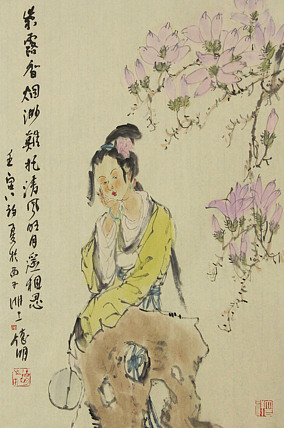 露香烟渺難托清风明月遥相思
壬寅初夏於西子湖上明